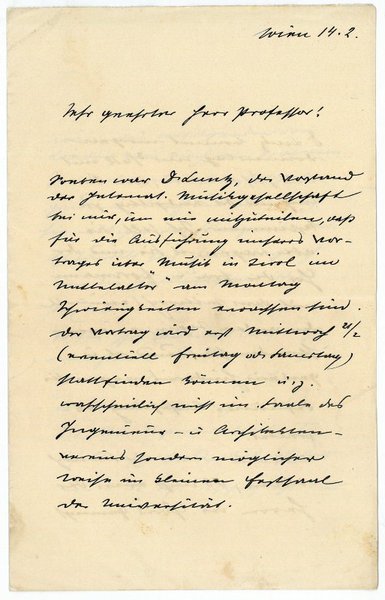 Wien 14.2.
Sehr geehrter Herr Professor!
Soeben war D. Luntz, der Vorstand
der Internat. Musikgesellschaft
bei mir, um mir mitzuteilen, daß
für die Ausführung unseres Vor-
trages über „Musik in Tirol im
Mittelalter" am Montag
Schwierigkeiten erwachsen sind.
Der Vortrag wird erst Mittwoch 21/2
(eventuell Freitag od. Samstag)
stattfinden können u. z.
wahrscheinlich nicht im Saale des
Ingenieur- u Architekten-
vereins sondern möglicher
Weise im kleinen Festsaal
der Universität.